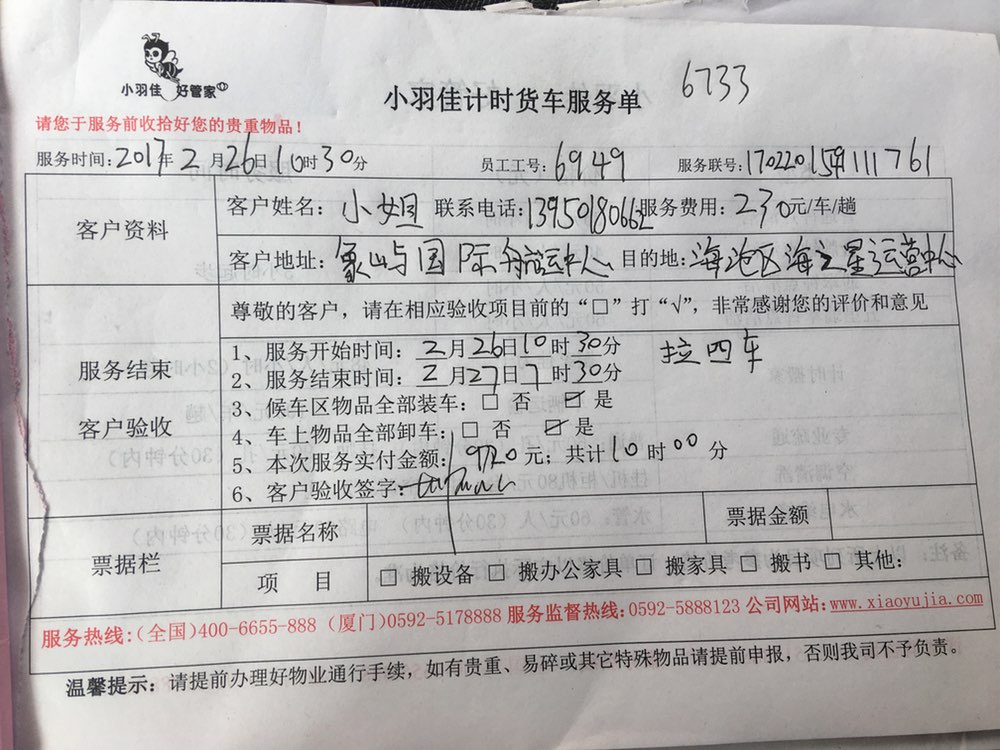 小羽佳 好管家
小羽佳计时货车服务单 6733
请您于服务前收拾好您的贵重物品！
服务时间：2017年2月26日10时30分 员工工号：6949 服务联号：
客户资料
客户姓名：小姐 联系电话：13950180662 服务费用：230元/车/趟
客户地址：象屿国际航运中心 目的地：海沧区海之星运营中心
尊敬的客户，请在相应验收项目前的“□”打“√”，非常感谢您的评价和意见
服务结束
客户验收
1、服务开始时间：2月26日10时30分 拉四车
2、服务结束时间：2月27日7时30分
3、候车区物品全部装车：□ 否 ☑ 是
4、车上物品全部卸车：□ 否 ☑ 是
5、本次服务实付金额：920元；共计10时00分
6、客户验收签字：
票据栏
票据名称 票据金额
项 目 □ 搬设备 □ 搬办公家具 □ 搬家具 □ 搬书 □ 其他：
服务热线：(全国)400-6655-888 (厦门)0592-5178888 服务监督热线：0592-5888123 公司网站：www.xiaoyujia.com
温馨提示：请提前办理好物业通行手续，如有贵重、易碎或其它特殊物品请提前申报，否则我司不予负责。